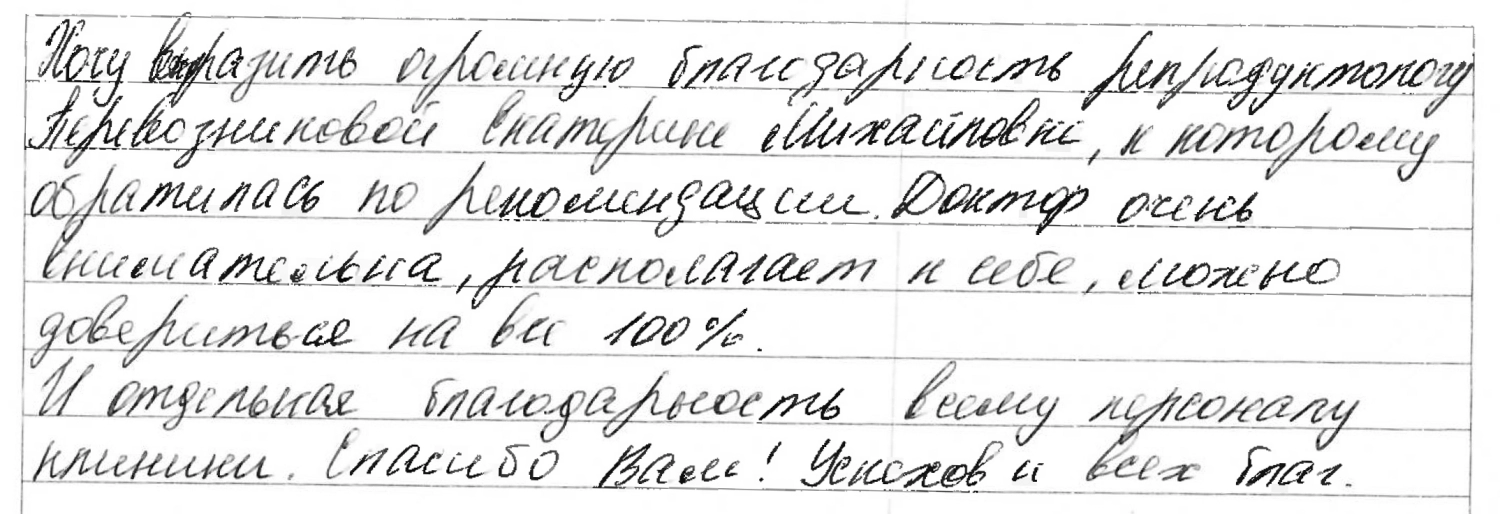 Хочу выразить огромную благодарность репродуктологу
Перевозниковой Екатерине Михайловне, к которому
обратилась по рекомендации. Доктор очень
внимательна, располагает к себе, можно
довериться на все 100%.
И отдельная благодарность всему персоналу
клиники. Спасибо Вам! Успехов и всех благ.